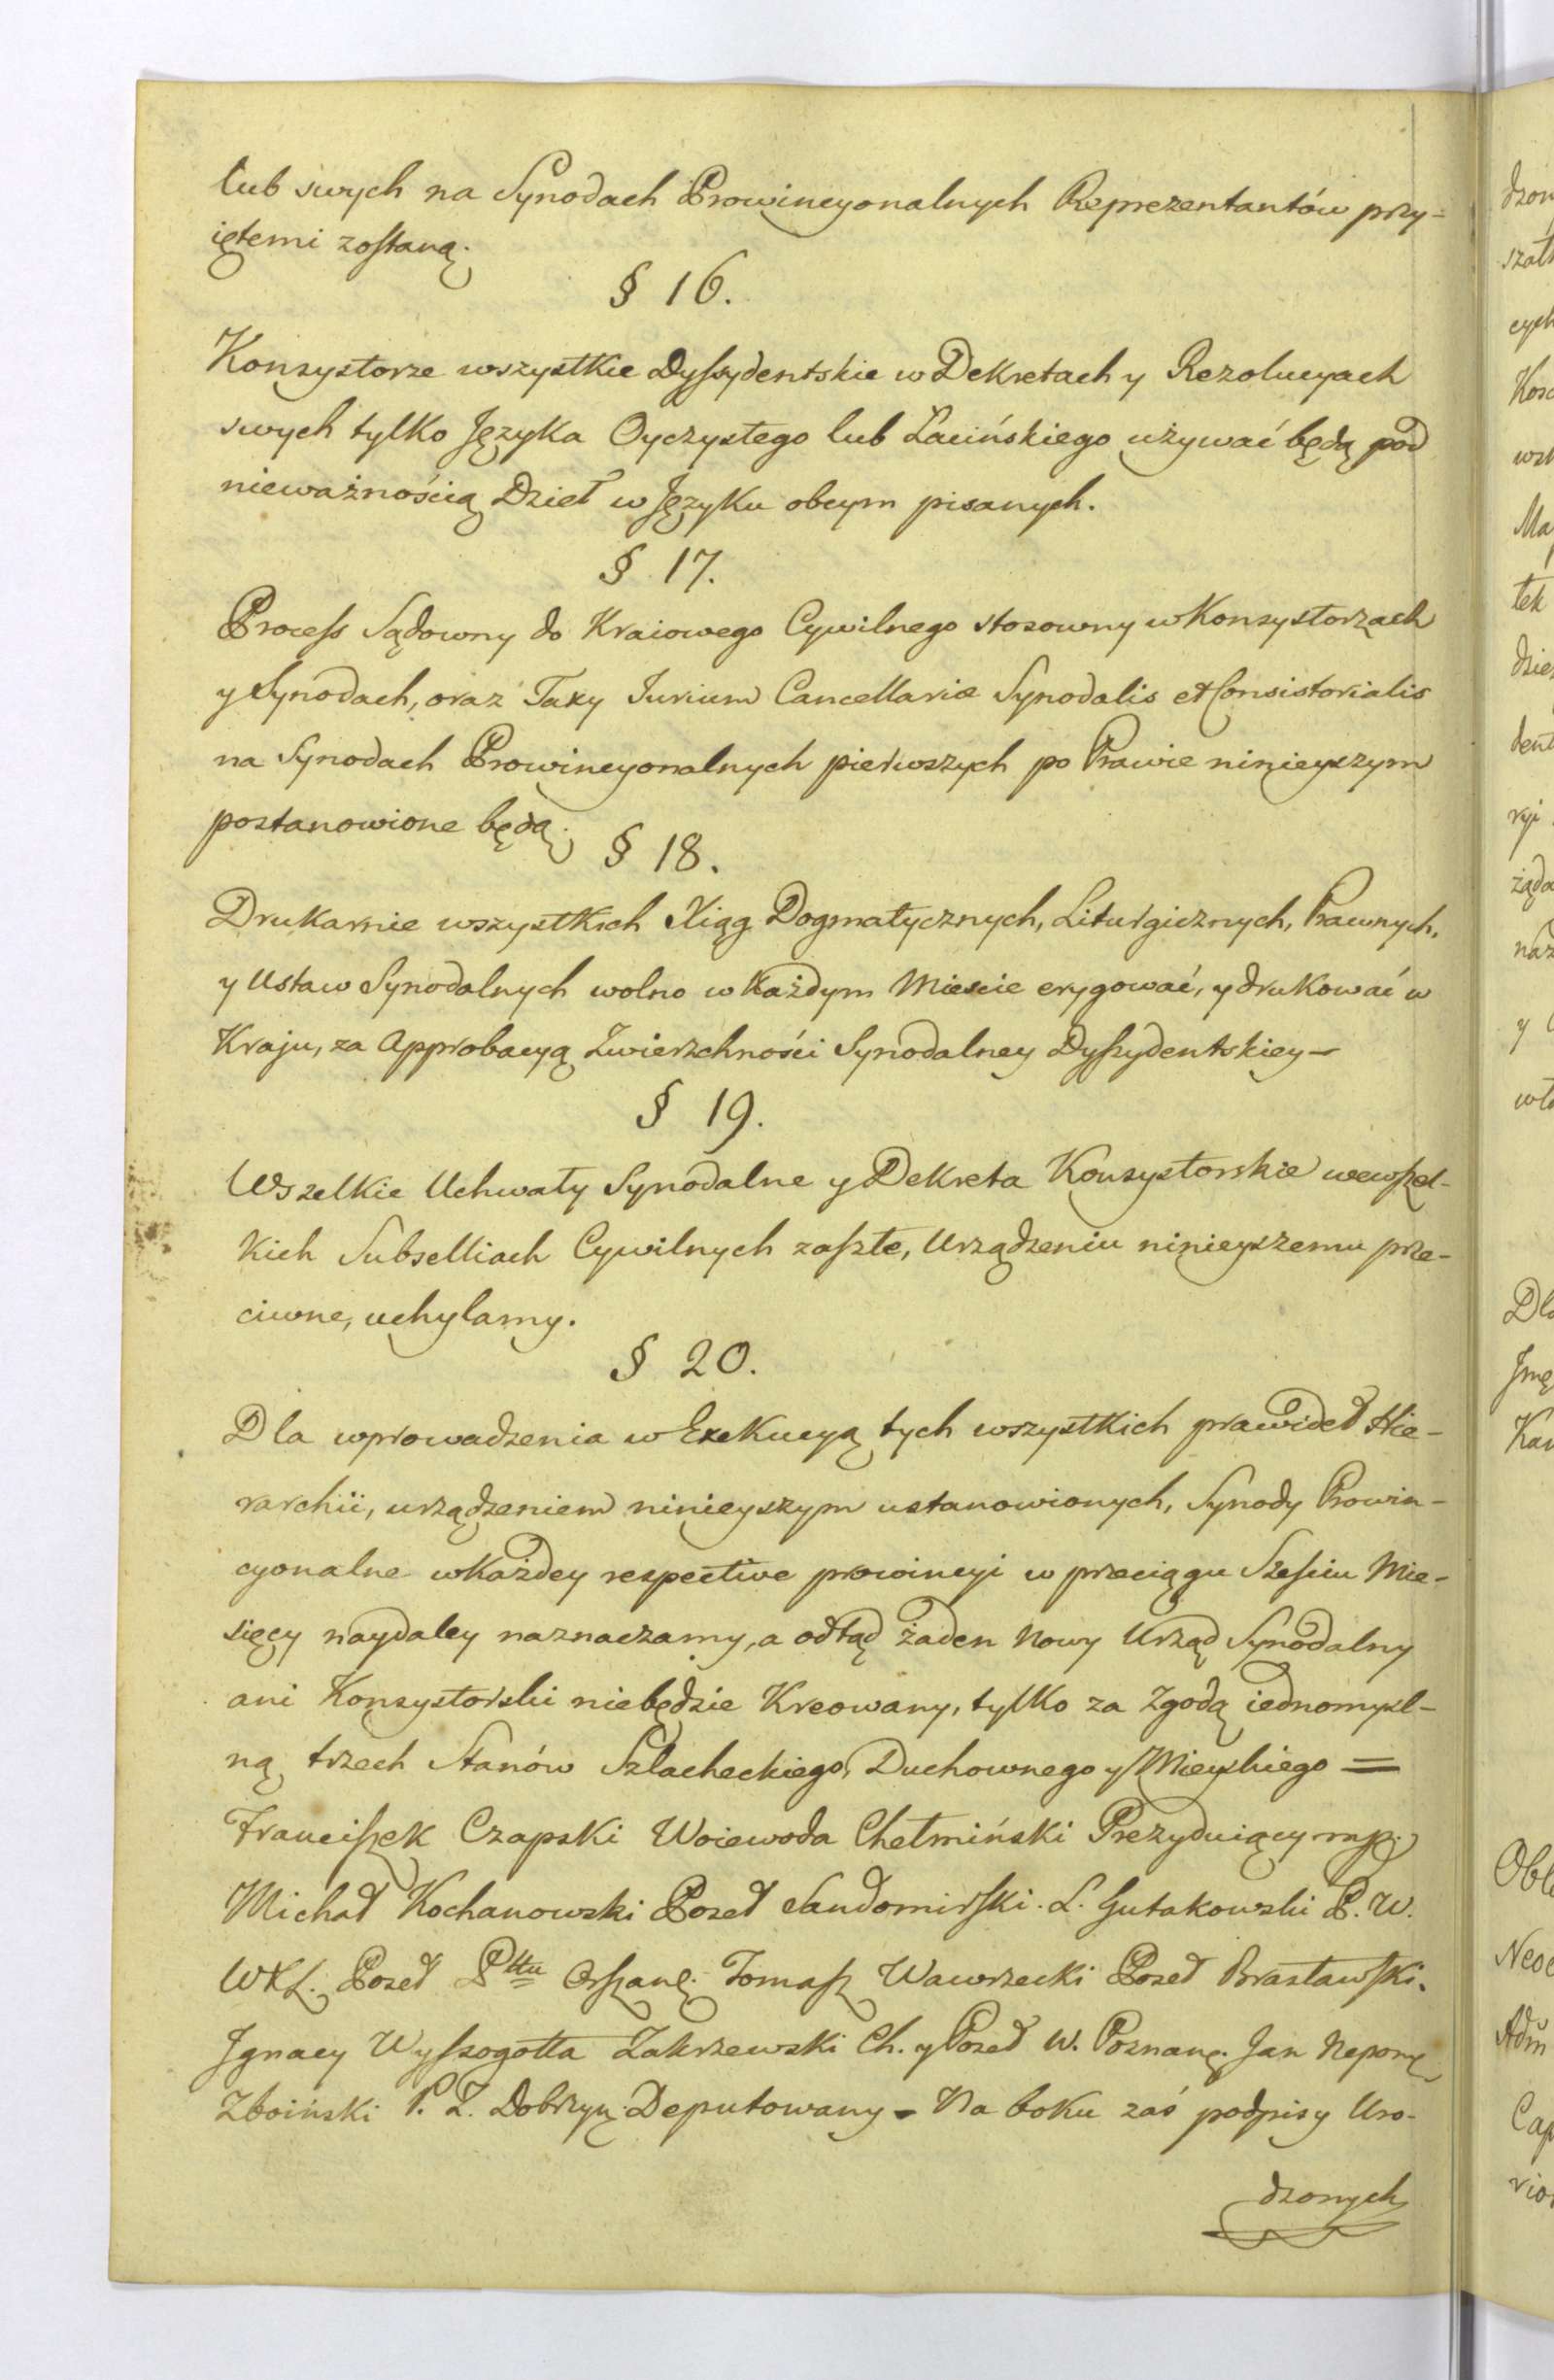 lub swych na Synodach Prowincyonalnych Reprezentantów przy-
iętemi zostaną.
§ 16.
Konsystorze wszystkie Dyssydentskie w Dekretach y Rezolucyach
swych tylko Języka Oyczystego lub Łacińskiego używać będą pod
nieważnością Dzieł w Języku obcym pisanych.
§ 17.
Process Sądowny do Kraiowego Cywilnego stosowny w Konsystorzach
y Synodach, oraz Taxy Iurium Cancellariæ Synodalis et Consistorialis
na Synodach Prowincyonalnych pierwszych po Prawie ninieyszym
postanowione będą.
§ 18.
Drukarnie wszystkich Xiąg Dogmatycznych, Liturgicznych, Prawnych,
y Ustaw Synodalnych wolno w Każdym Mieście erygować, y drukować w
Kraju, za Approbacyą Zwierzchności Synodalney Dyssydentskiey –
§ 19.
Wszelkie Uchwały Synodalne y Dekreta Konsystorskie wewszel-
kich Subselliach Cywilnych zaszłe, Urządzeniu ninieyszemu prze-
ciwne, uchylamy.
§ 20.
Dla wprowadzenia w Exekucyą tych wszystkich prawideł Hie-
rarchii, urządzeniem ninieyszym ustanowionych, Synody Prowin-
cyonalne w Każdey respective prowincyi w przeciągu Sześciu Mie-
sięcy naydaley naznaczamy, a odtąd żaden Nowy Urząd Synodalny
ani Konsystorski niebędzie Kreowany, tylko za Zgodą iednomyśl-
ną trzech Stanów Szlacheckiego, Duchownego y Mieyskiego =
Franciszek Czapski Woiewoda Chełmiński Prezyduiący mp.
Michał Kochanowski Poseł Sandomirski. L. Gutakowski P. W.
WXL. Poseł Pttu Orszańs. Tomasz Wawrzecki Poseł Brasławski.
Ignacy Wyssogotta Zakrzewski Ch. y Poseł W. Poznańs. Jan Nepom.
Zboiński P. Z. Dobrzyń. Deputowany – Na boku zaś podpisy Uro-
dzonych